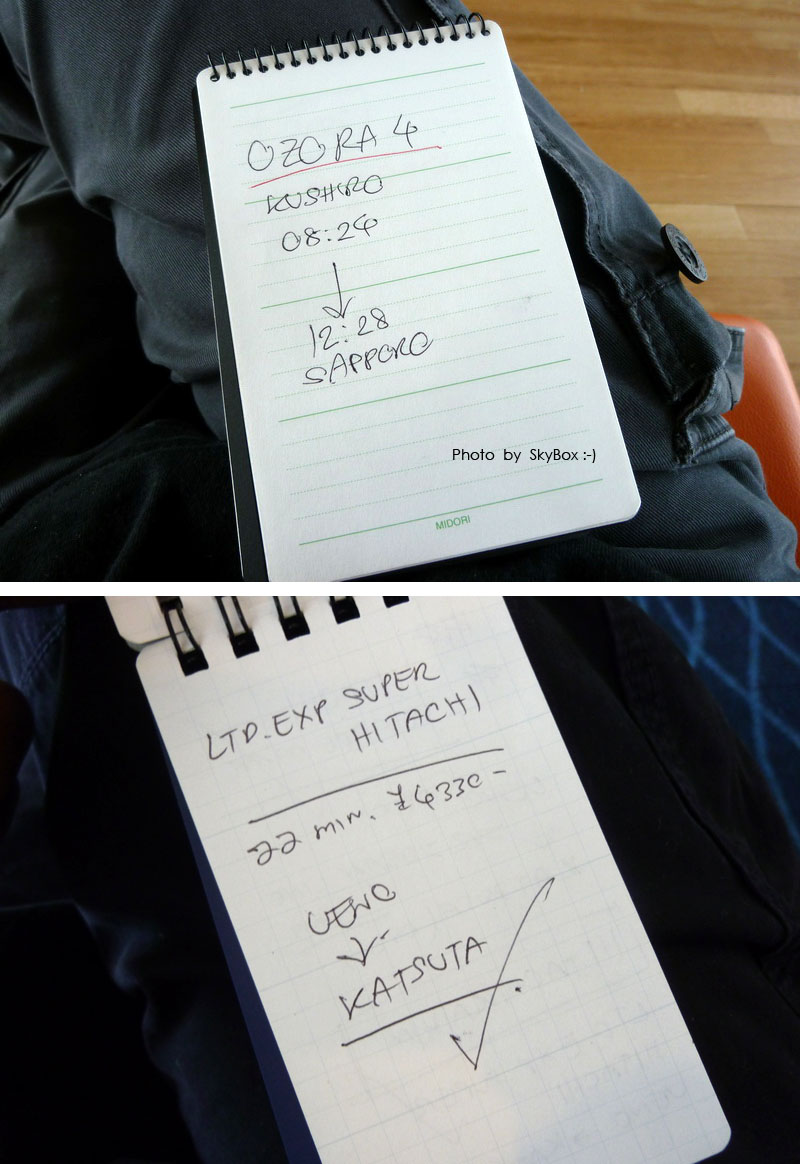 OZORA 4
KUSHIRO
08:24
12:28
SAPPORO
Photo by SkyBox :-)
MIDORI
LTD.EXP SUPER
HITACHI
22 min. ¥4330-
UENO
KATSUTA